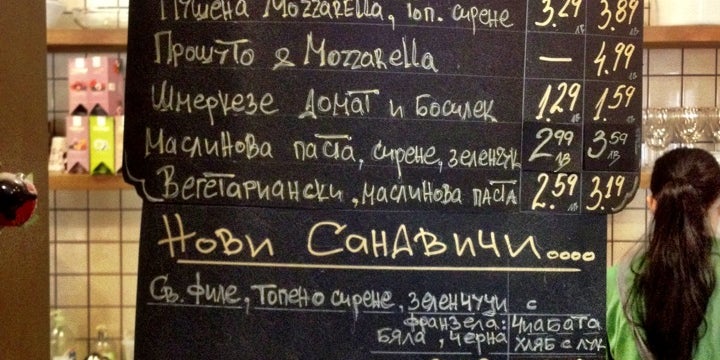 Пушена Mozzarella, топ. сирене 3.29 лв 3.89 лв
Прошутто & Mozzarella — 4.99 лв
Шмеркезе Домат и Босилек 1.29 лв 1.59 лв
Маслинова паста, сирене, зеленчук 2.99 лв 3.59 лв
Вегетариански, маслинова паста 2.59 лв 3.19 лв
Нови Сандвичи....
Св. филе, топено сирене, зеленчуци с
франзела: чиабата
бяла, черна хляб с лук